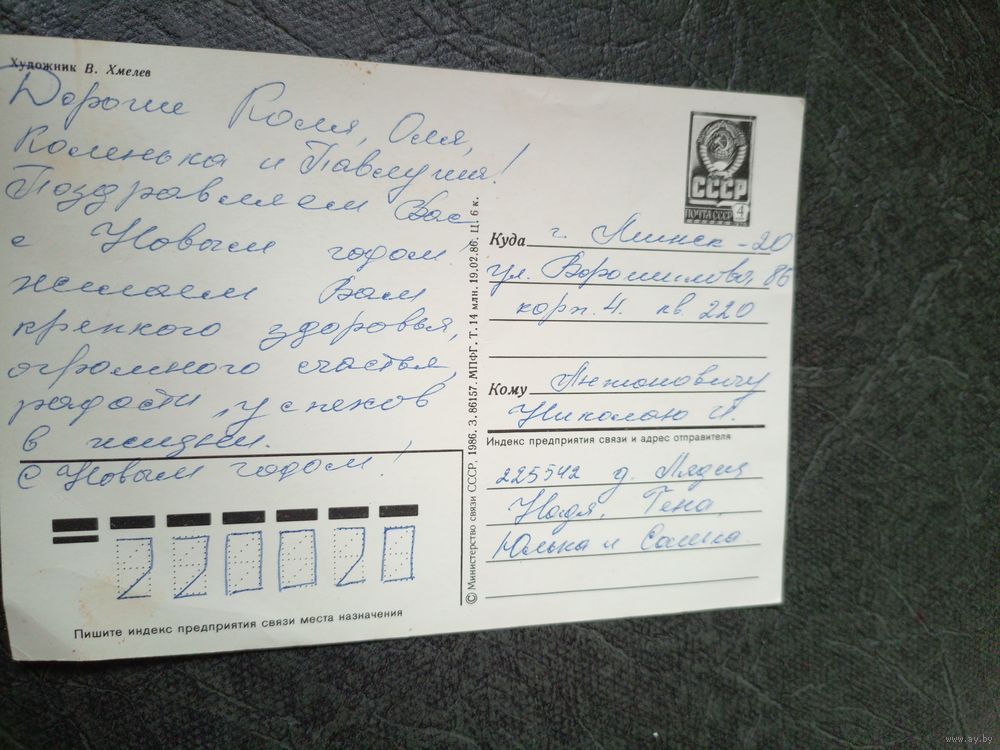 Художник В. Хмелев
Дорогие Коля, Оля,
Коленька и Павлуша!
Поздравляем Вас
с Новым годом!
желаем Вам
крепкого здоровья,
огромного счастья,
радости, успехов
в жизни.
С Новым годом!
220020
Пишите индекс предприятия связи места назначения
© Министерство связи СССР, 1986. З. 86157. МПФГ. Т. 14 млн. 19.02.86. Ц. 6 к.
СССР
ПОЧТА СССР 4
Куда г. Минск-20
ул. Ворошилова, 86
корп. 4. кв. 220
Кому Антоновичу
Николаю И.
Индекс предприятия связи и адрес отправителя
225542 д. Лядец
Надя, Гена,
Юлька и Сашка.
www.ay.by